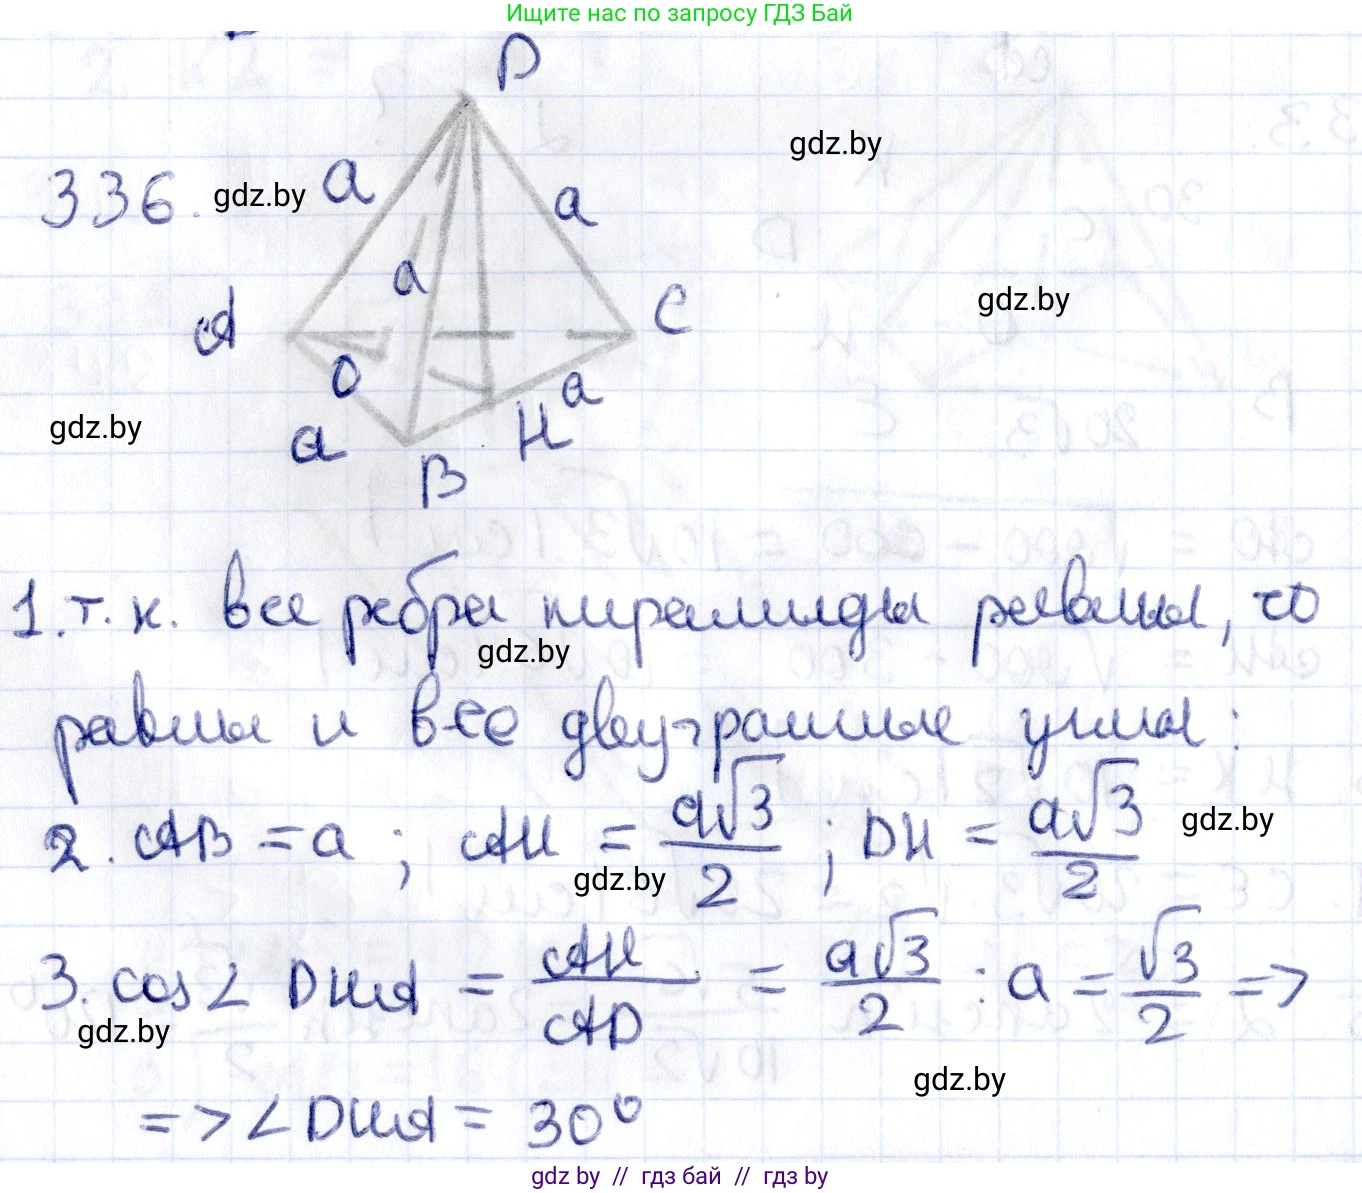 Ищите нас по запросу ГДЗ Бай
D
336.
gdz.by
a
a
gdz.by
a
A
C
gdz.by
O
a
gdz.by
a
H
B
1. т.к. все ребра пирамиды равны, то
gdz.by
равны и все двугранные углы:
2. AB = a ; AH = a√3/2 ; DH = a√3/2
gdz.by
gdz.by
3. cos∠ DHA = AH/AD = a√3/2 : a = √3/2 =>
gdz.by
gdz.by
=> ∠DHA = 30°
gdz.by // гдз бай // гдз by